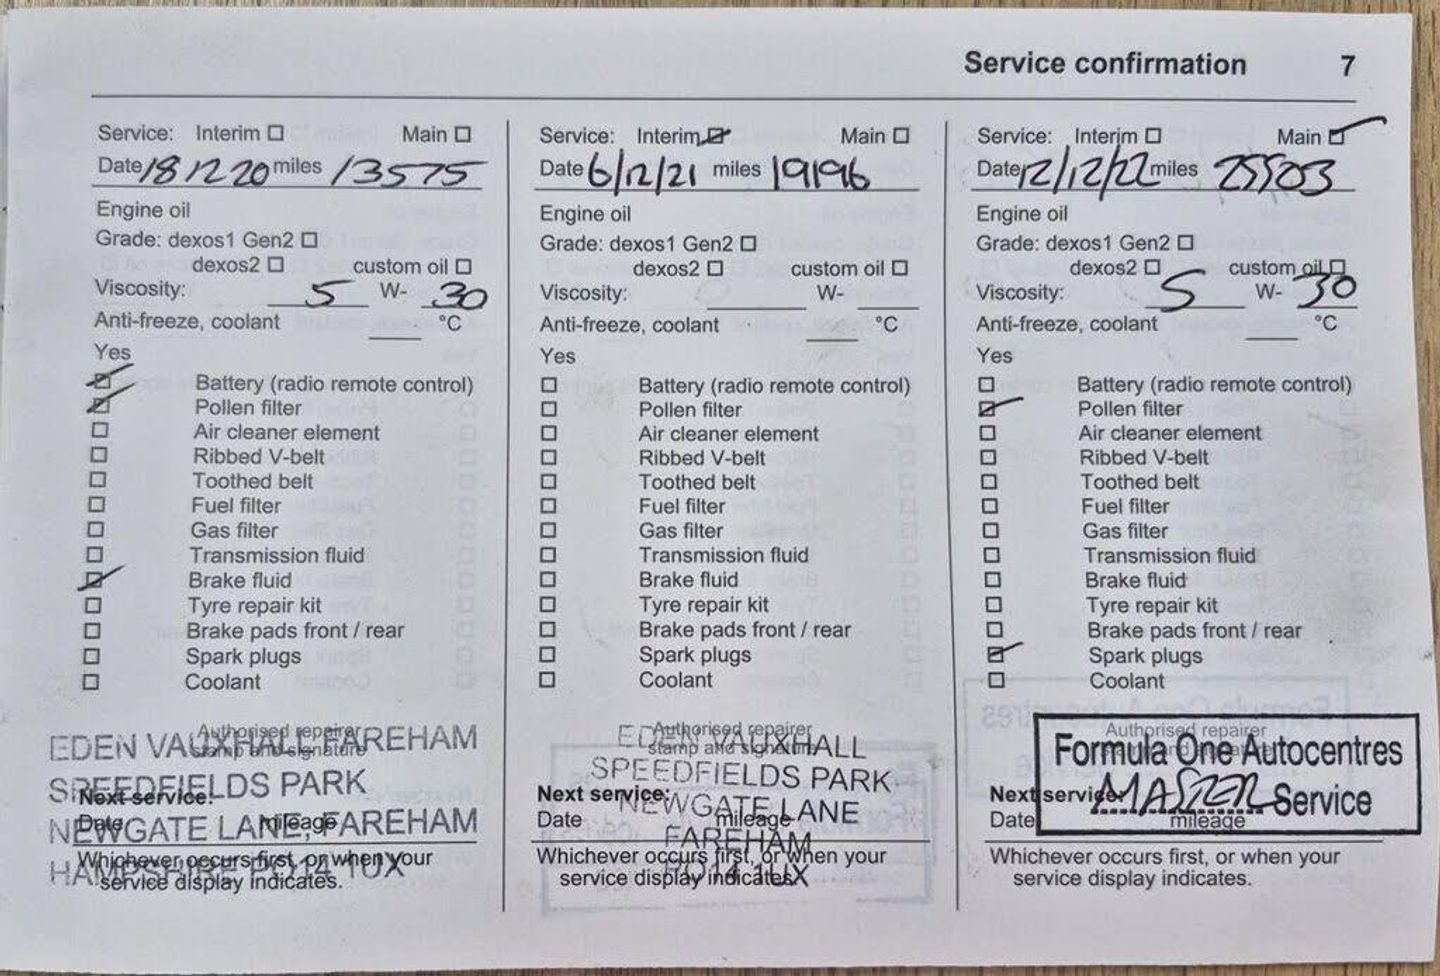 Service confirmation 7
Service: Interim Main
Date 18 12 20 miles 13575
Engine oil
Grade: dexos1 Gen2
dexos2 custom oil
Viscosity: 5 W- 30
Anti-freeze, coolant °C
Yes
Battery (radio remote control)
Pollen filter
Air cleaner element
Ribbed V-belt
Toothed belt
Fuel filter
Gas filter
Transmission fluid
Brake fluid
Tyre repair kit
Brake pads front / rear
Spark plugs
Coolant
Authorised repairer
stamp and signature
EDEN VAUXHALL FAREHAM
SPEEDFIELDS PARK
Next service:
NEWGATE LANE, FAREHAM
Date mileage
HAMPSHIRE PO14 1UX
Whichever occurs first, or when your
service display indicates.
Service: Interim Main
Date 6/12/21 miles 19196
Engine oil
Grade: dexos1 Gen2
dexos2 custom oil
Viscosity: W-
Anti-freeze, coolant °C
Yes
Battery (radio remote control)
Pollen filter
Air cleaner element
Ribbed V-belt
Toothed belt
Fuel filter
Gas filter
Transmission fluid
Brake fluid
Tyre repair kit
Brake pads front / rear
Spark plugs
Coolant
Authorised repairer
stamp and signature
EDEN VAUXHALL
SPEEDFIELDS PARK
Next service:
NEWGATE LANE
Date mileage
FAREHAM
Whichever occurs first, or when your
PO14 1UX
service display indicates.
Service: Interim Main
Date 12/12/22 miles 25503
Engine oil
Grade: dexos1 Gen2
dexos2 custom oil
Viscosity: 5 W- 30
Anti-freeze, coolant °C
Yes
Battery (radio remote control)
Pollen filter
Air cleaner element
Ribbed V-belt
Toothed belt
Fuel filter
Gas filter
Transmission fluid
Brake fluid
Tyre repair kit
Brake pads front / rear
Spark plugs
Coolant
Authorised repairer
stamp and signature
Formula One Autocentres
MASTER Service
Next service:
Date mileage
Whichever occurs first, or when your
service display indicates.